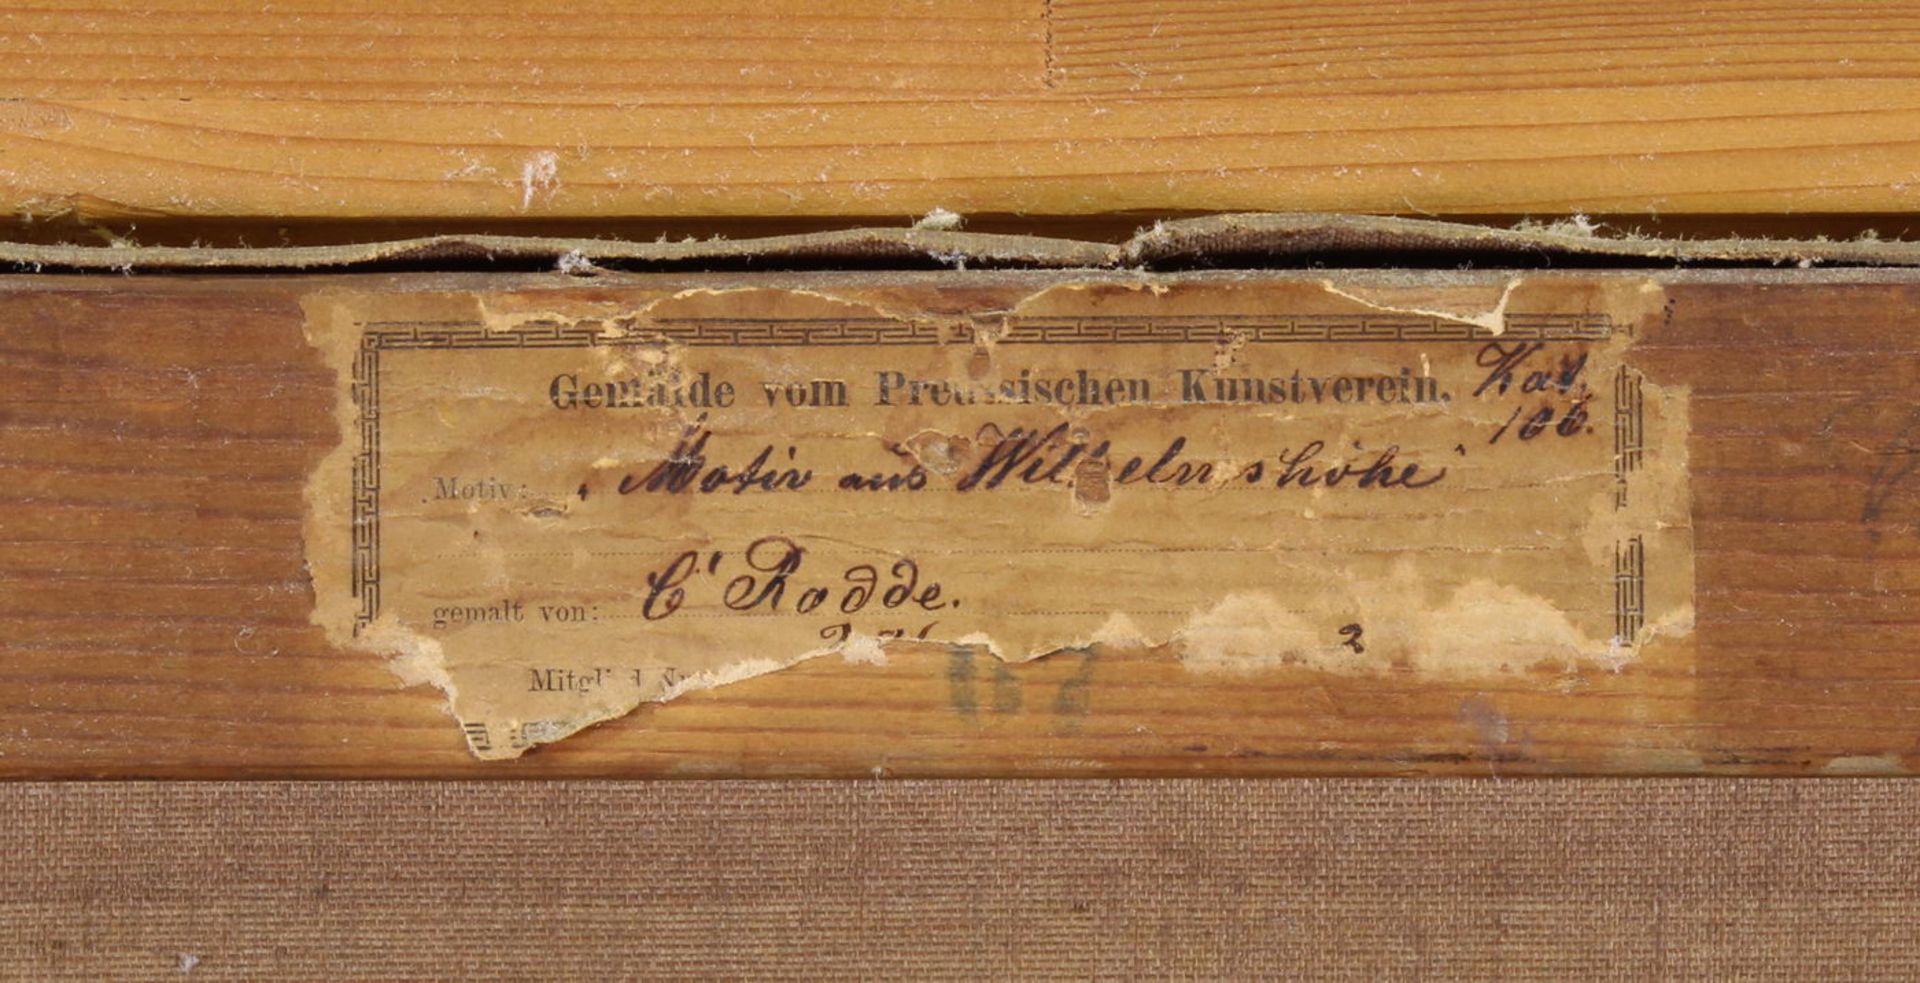 Gemälde vom Preussischen Kunstverein. Kat.
106.
Motiv: „Motiv aus Wilhelmshöhe"
gemalt von: C. Rodde.
2